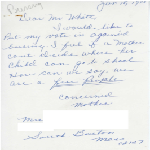 Dear Mr White
I would like to
put my vote in against
busing. I feel if a Mother
can't decide where her
Child can go to School
How can we say we
are a free people
concerned
Mother
Mrs
South Boston
Mass